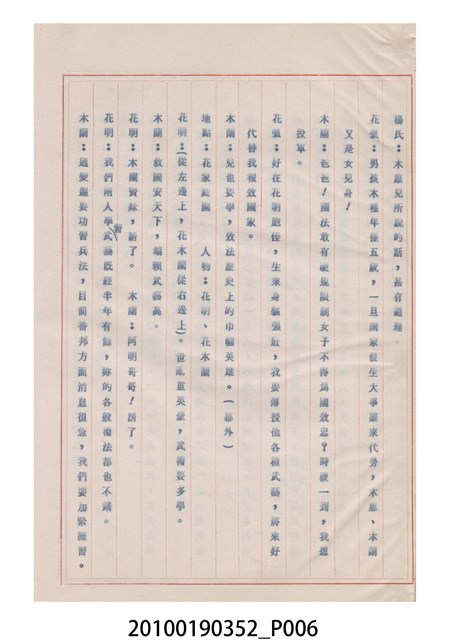 楊氏：木惠兒所說的話，甚有道理。
花弧：男孩木棣年僅五歲，一旦國家發生大事誰來代勞，木惠、木蘭
又是女兒身！
木蘭：爸爸！國法敢有硬規限制女子不得為國效忠？時機一到，我想
投軍。
花弧：好在花明跑侄，生來身軀强壯，我要傳授他各種武藝，將來好
代替我報效國家。
木蘭：兒也要學，效法歷史上的巾幗英雄。（幕外）
地點：花家庭園　人物：花明、花木蘭
花明：（從左邊上，花木蘭從右邊上）。世亂重英豪，武術要多學。
木蘭：救國安天下，端賴武藝高。
花明：木蘭賢妹，請了。　木蘭：阿明哥哥！請了。
花明：我們兩人學習武藝既經半年有餘，妳的各般術法都也不錯。
木蘭：還要勤習兵法，目前番邦方面消息很急，我們要加緊練習。
20100190352_P006